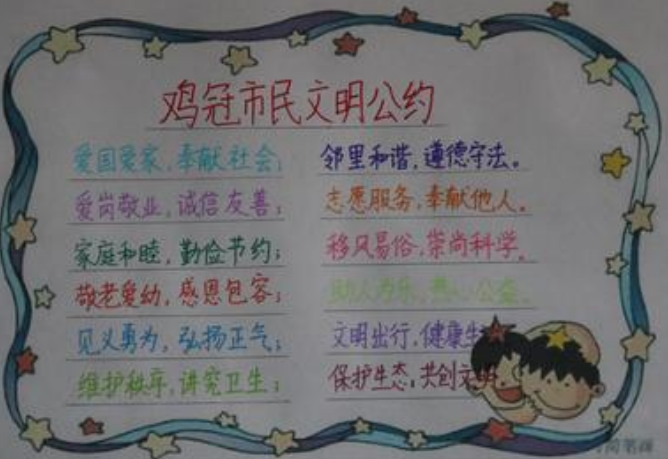 鸡冠市民文明公约
爱国爱家,奉献社会; 邻里和谐,遵德守法。
爱岗敬业,诚信友善; 志愿服务,奉献他人。
家庭和睦,勤俭节约; 移风易俗,崇尚科学。
敬老爱幼,感恩包容; 助人为乐,热心公益。
见义勇为,弘扬正气; 文明出行,健康生
维护秩序,讲究卫生; 保护生态,共创文明
简笔画